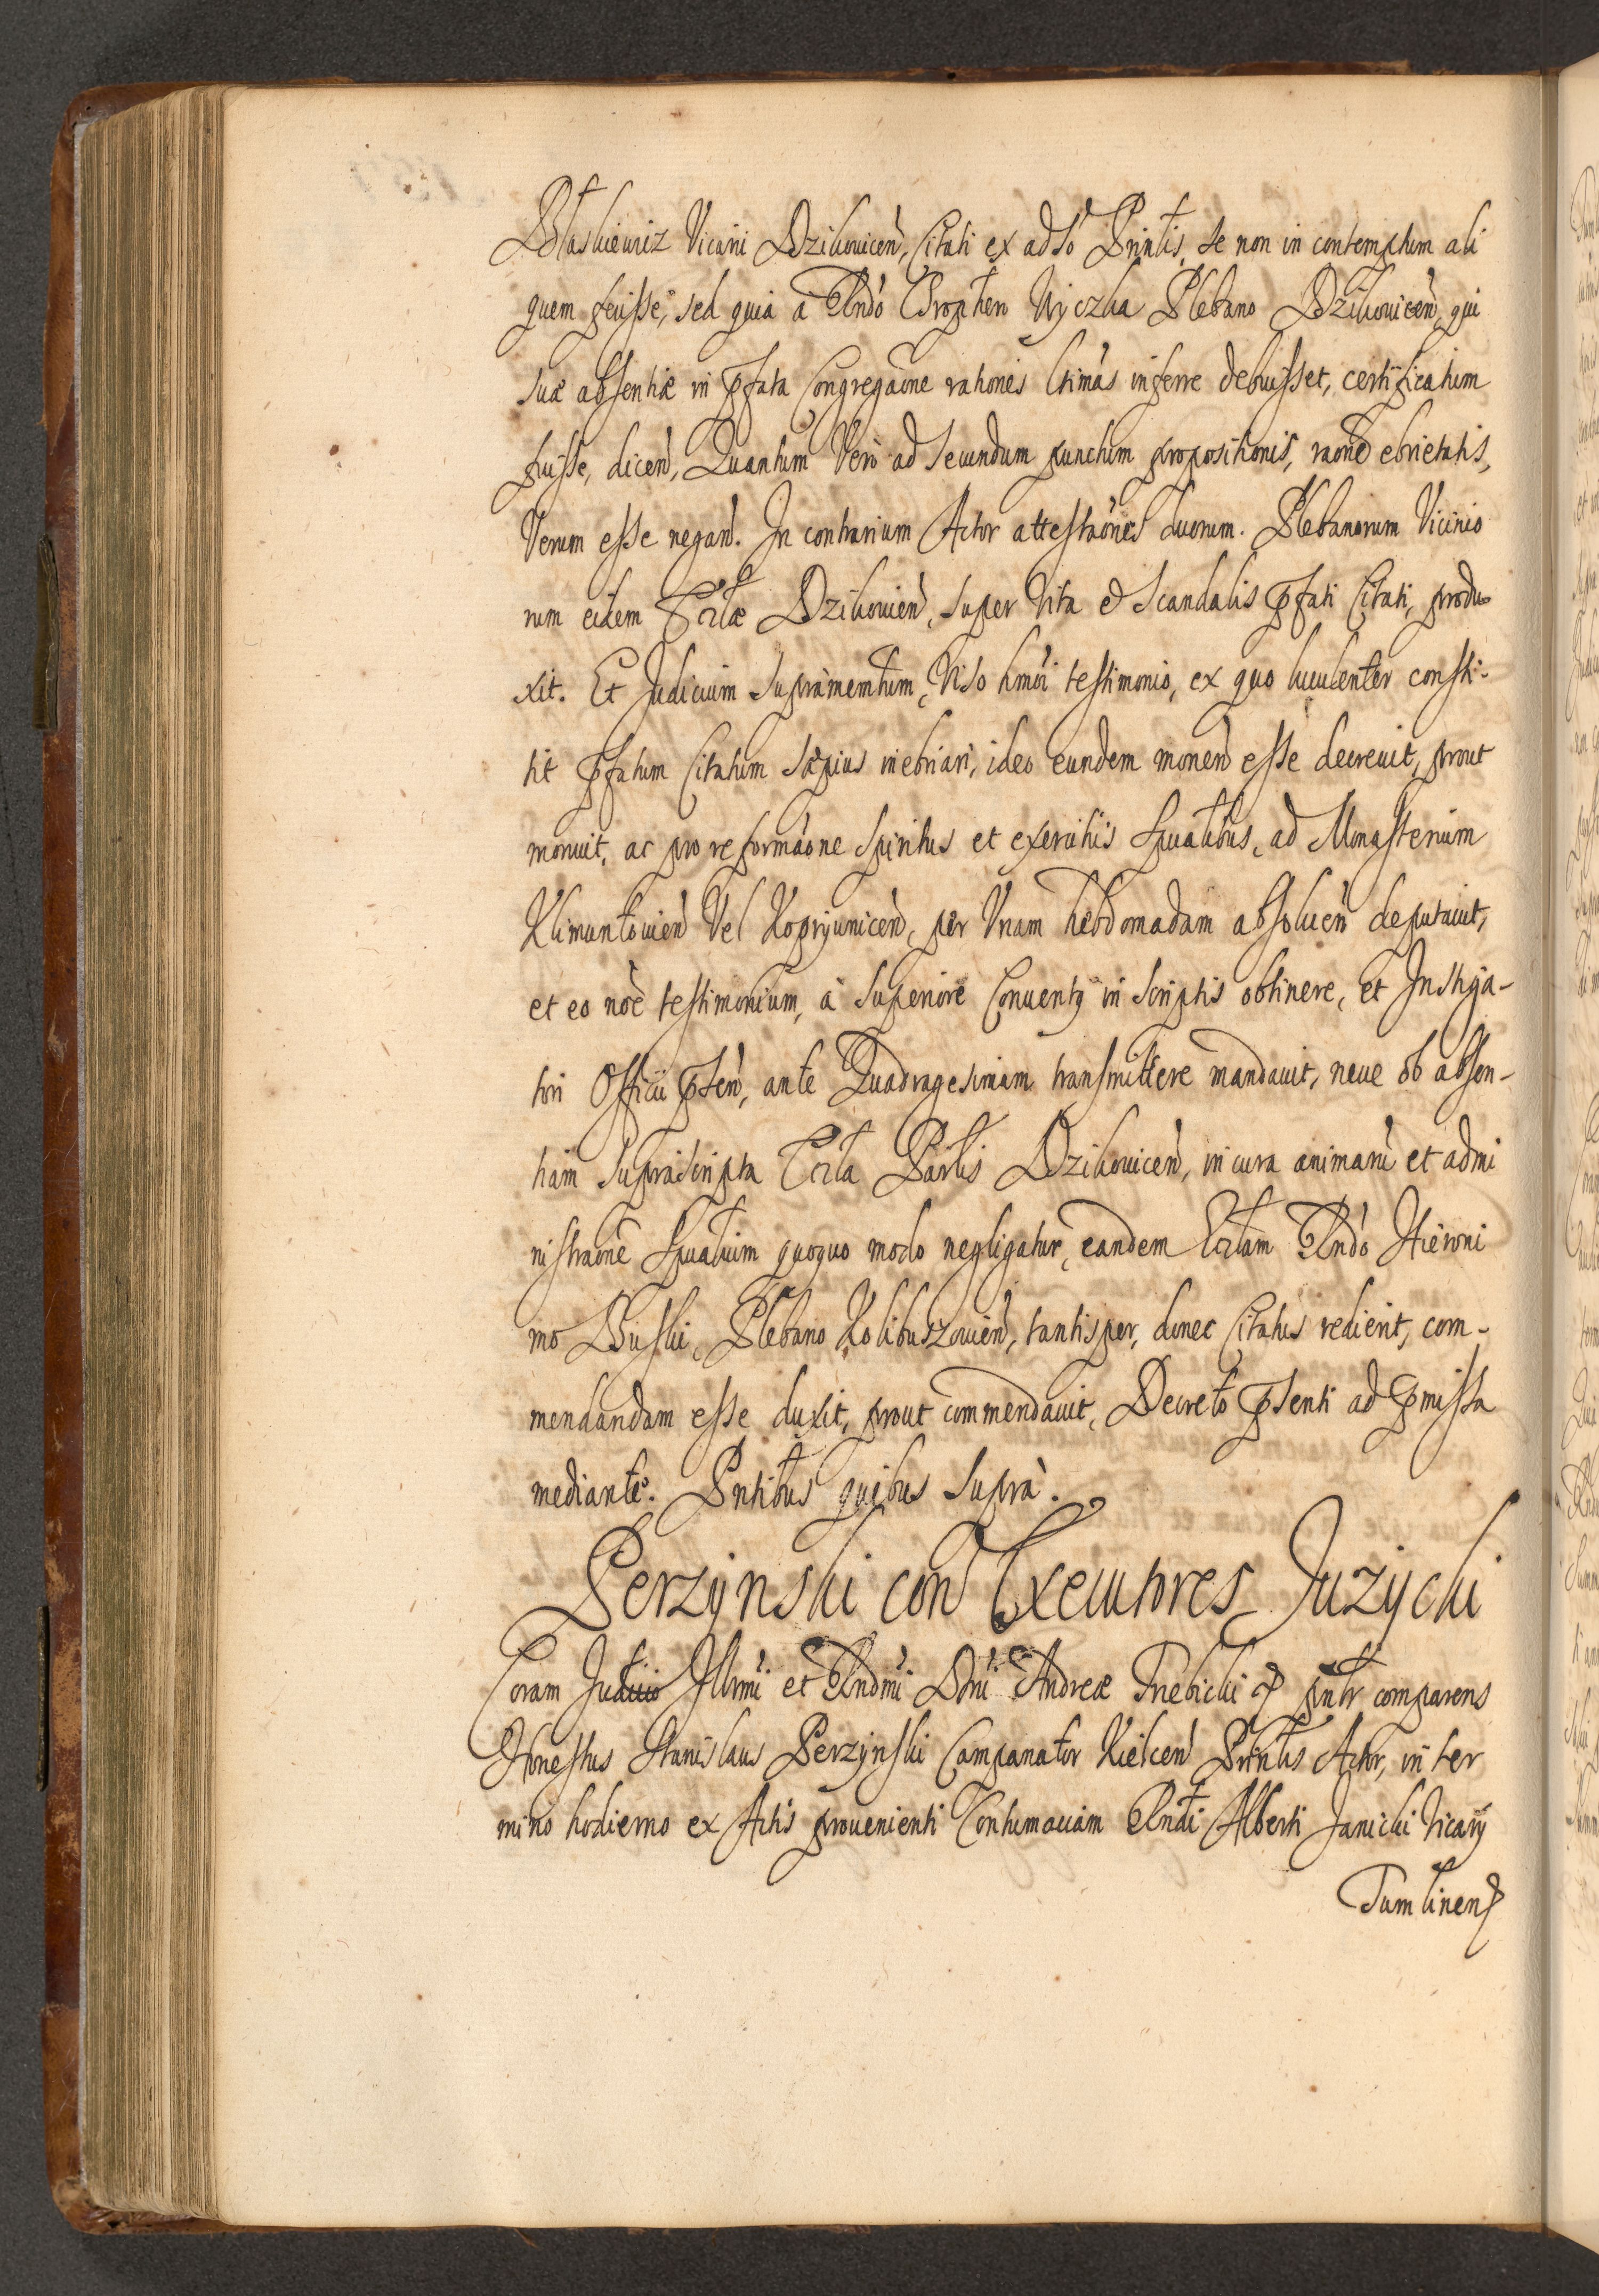 Błaskiewiz Vicarii Dzikovicen̄, Citati ex adso Prin̄lis, se non in contemptum ali
quem feuisse, sed quia a Rn̄do Chrophen Wyczka Plebano Dzikovicen̄, qui
suæ absentiæ in p̄fata Congregaōne rationes l̄timas inferre debuisset, certificatum
fuisse, dicen̄, Quantum Vero ad secundum punctum propositionis, raōne ebrietatis,
Verum esse negan̄. In contrarium Actor attestaōnes duorum. Plebanorum Vicinio
rum eidem Ecclæ Dzikovien̄, super Vita et Scandalis p̄fati Citati, produ
xit. Et Judicium supramentum, Viso hm̄oi testimonio, ex quo luculenter consti-
tit p̄fatum Citatum sæpius inebriari, ideo eundem monen̄ esse decrevit, prout
monuit, ac pro reformaōne Spiritus et exercitiis Spūalibus, ad Monasterium
Klimuntovien̄ Vel Koprzyvnicen̄, per Vnam hebdomadam absoluen̄ deputauit,
et eo nōe testimonium, a Superiore Conventus in scriptis obtinere, et Instiga-
tori Officii p̄sen̄, ante Quadragesimam transmittere mandauit, neue ob absen-
tiam suprascripta Eccla Parlis Dzikovicen̄, in cura animarū et admi
nistraōne Spūalium quoquo modo negligatur, eandem Ecclam Rn̄do Hieroni
mo Buski, Plebano Kolibuszovien̄, tantisper, donec Citatus redierit, com-
mendandam esse duxit, prout commendauit, Decreto p̄senti ad p̄missa
mediante. Pn̄tibus quibus supra.
Perzynski con Exequutores Juzycki
Coram Judicio Illrmi et Rndmi Dn̄i Andreæ Trebicki &c pn̄tr comparens
Honestus Stanislaus Perzynski Campanator Kielcen̄ Prin̄lis Actor, in ter
mino hodierno ex Actis provenienti Contumaciam Rn̄di Alberti Janicki Vicarÿ
Tumlinens